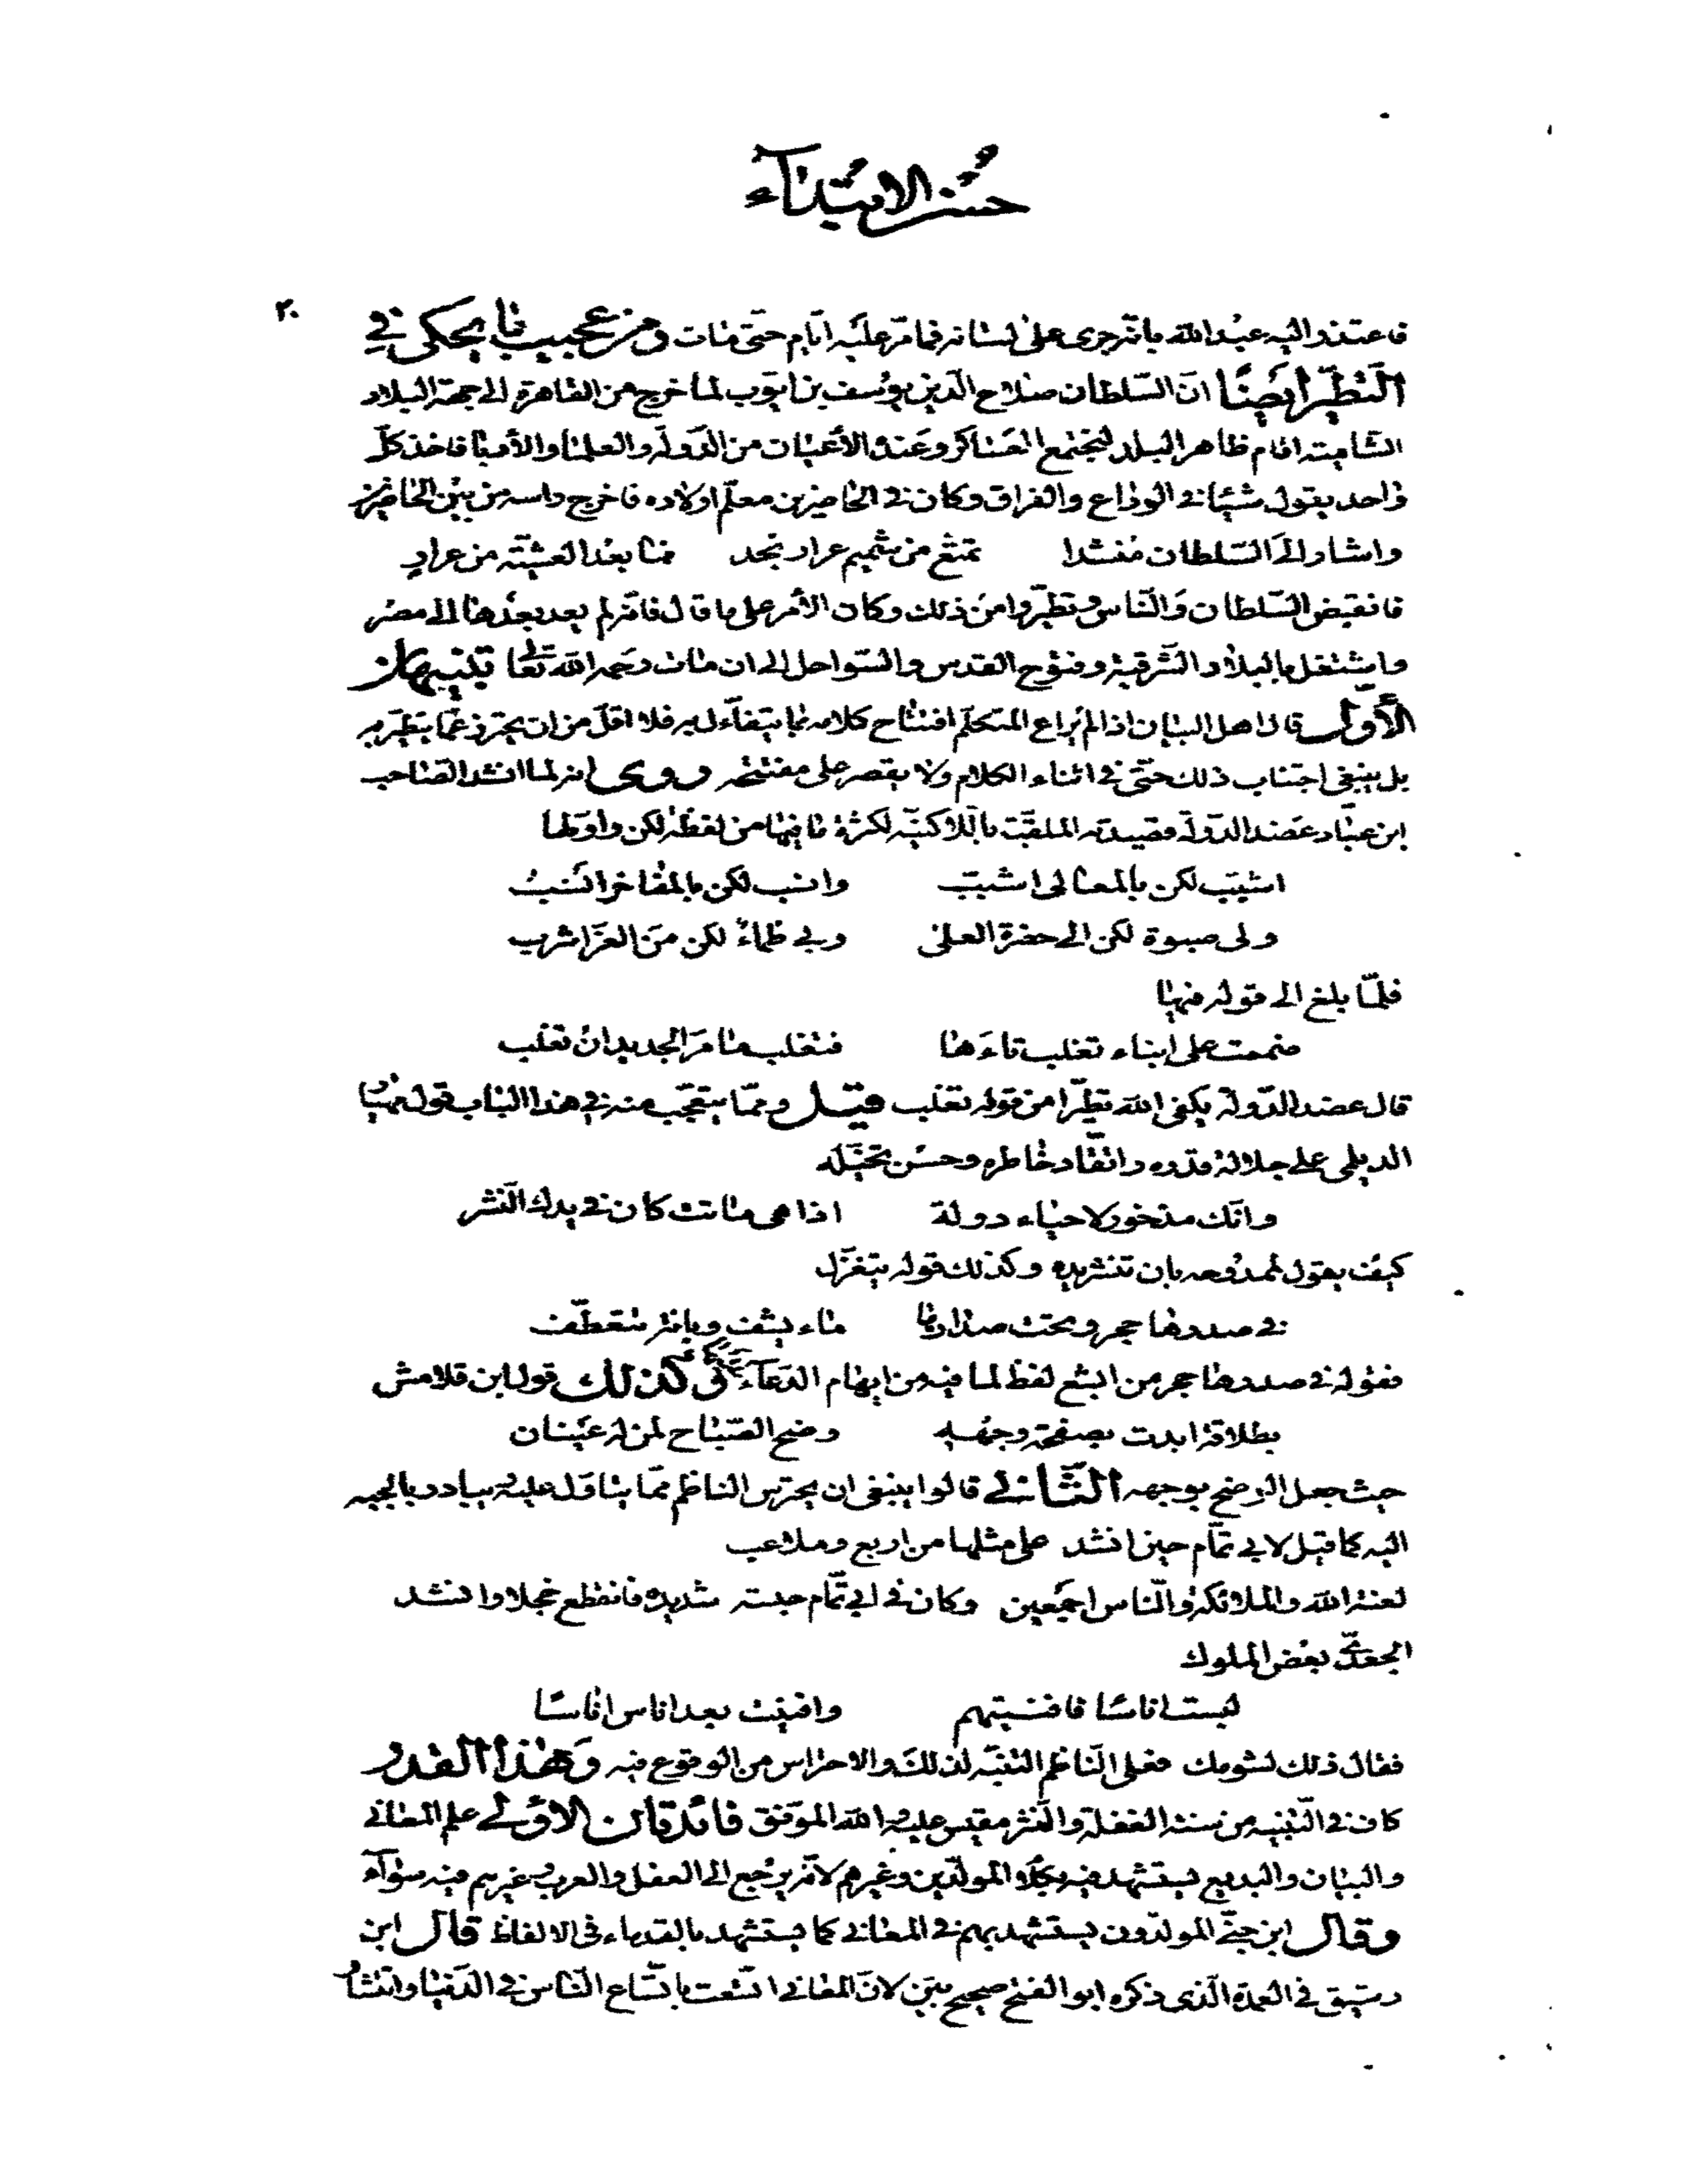 حُسن الابتداء
٢٠
فاعتذر اليه عبد الله بانه جرى على لسانه فما مرّ عليه ايّام حتّى مات ومن عجيب ما يحكى في
التّطيّر ايضًا انّ السّلطان صلاح الدّين يوسف بن ايّوب لما خرج من القاهرة الى جهة البلاد
الشّاميّة اقام ظاهر البلد لتجتمع العساكر وعنده الأعيان من الدّولة والعلما والأدبا فاخذ كلّ
واحد يقول شيئا في الوداع والفراق وكان في الحاضرين معلّم اولاده فاخرج راسه من بين الحاضرين
واشار الى السّلطان منشدا تمتّع من شميم عرار نجد فما بعد العشيّة من عرارِ
فانقبض السّلطان والنّاس وتطيّروا من ذلك وكان الأمر على ما قال فانّه لم يعد بعدها الى مصر
واشتغل بالبلاد الشّرقية وفتوح القدس والسّواحل الى ان مات رحمه الله تعالى تنبيهان
الأوّل قال اهل البيان اذا لم يراع المتكلّم افتتاح كلامه بما يتفاءل به فلا اقلّ من ان يحترز عمّا يتطيّر به
بل ينبغي اجتناب ذلك حتّى في اثناء الكلام ولا يقصر على مفتتحه روى انه لما انشد الصّاحب
ابن عبّاد عضد الدّولة قصيدته الملقّبة باللاكنيّه لكثرة ما فيها من لفظة لكن واوّلها
اشيّب لكن بالمعالى اشيّب وانسب لكن بالمفاخر انسبُ
ولى صبوة لكن الى حضرة العلى وبى ظماءٌ لكن من العزّ اشرب
فلمّا بلغ الى قوله فيها
ضممت على ابناء تغلب تاءها فتغلب ما مرّ الجديدان تغلب
قال عضد الدّولة يكفى الله تطيّرا من قوله تغلب قيل وممّا يتعجّب منه في هذا الباب قول مهيار
الديلمى على جلالة قدره واتّقاد خاطره وحسن تخيّله
وانّك مذخور لاحياء دولة اذا هى ماتت كان في يدك النّشر
كيف يقول لممدوحه بان تنشر يده وكذلك قوله يتغزّل
في صدرها حجر وتحت صدارها ماء يشف وبانة تتعطّف
فقوله في صدرها حجر من ابشع لفظ لما فيه من ايهام الدّعاء وكذلك قول ابن قلاقس
بطلاقة ابدت بصفحة وجهه وضح الصّباح لمن له عينان
حيث جعل الوضح بوجهه الثّاني قالوا ينبغى ان يحترس الناظم ممّا يتاوّل عليه ببادر بالجبه
اليه كما قيل لابي تمّام حين انشد على مثلها من اربع وملاعب
لعنة الله والملائكة والنّاس اجمعين وكان في ابي تمّام حبسة شديده فانقطع خجلا وانشد
الجعديّ بعض الملوك
لبست اناسًا فافنيتهم وافنيت بعد اناس اناسًا
فقال ذلك لشومك فعلى النّاظم التنبّه لذلك والاحتراس من الوقوع فيه وهذا القدر
كاف في التّنبيه من سنة الغفلة والنّثر مقيس عليه والله الموفّق فائدتان الاولى علم المعاني
والبيان والبديع يستشهد فيه بكلام المولّدين وغيرهم لانّه يرجع الى العقل والعرب وغيرهم فيه سوآء
وقال ابن جنّي المولّدون يستشهد بهم في المعاني كما يستشهد بالقدماء في الالفاظ قال ابن
رشيق في العمدة الّذى ذكره ابو الفتح صحيح بيّن لانّ المعاني اتّسعت باتّساع النّاس في الدّنيا وانتشار